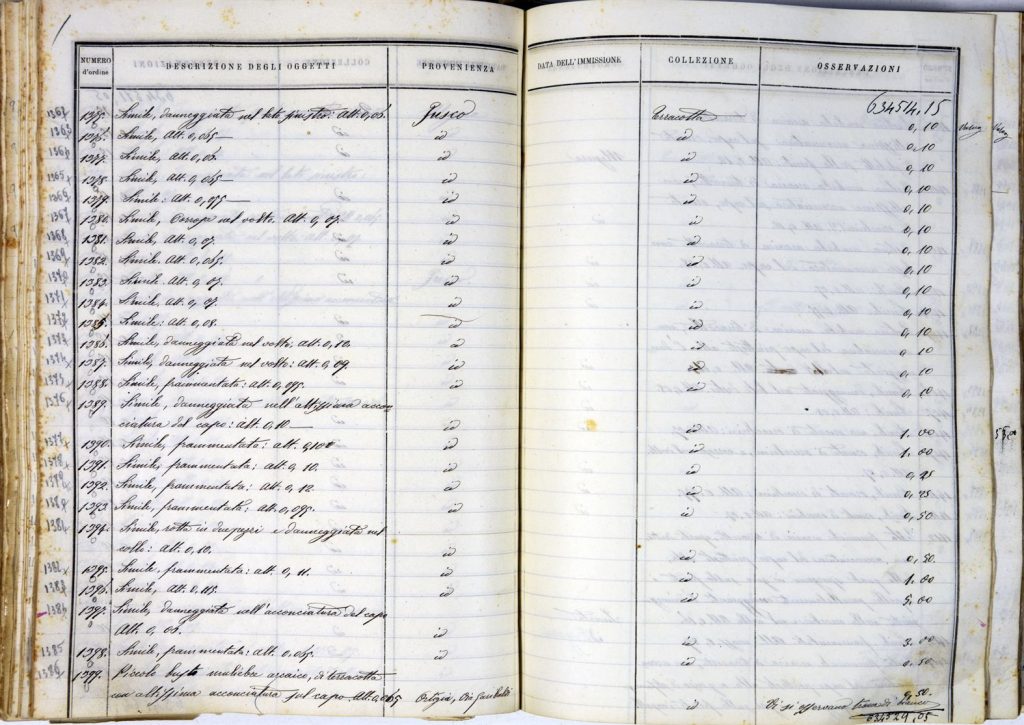 NUMERO d'ordine DESCRIZIONE DEGLI OGGETTI PROVENIENZA DATA DELL'IMMISSIONE COLLEZIONE OSSERVAZIONI
63454,15
1375. Simile, danneggiata nel lato sinistro: alt. 0,06 Fusco Terracotta 0,10
1376. Simile, alt. 0,065 id id 0,10
1377. Simile, alt. 0,06. id id 0,10
1378. Simile, alt. 0,065 id id 0,10
1379. Simile: alt. 0,075 id id 0,10
1380. Simile, corrosa nel volto. alt. 0,07. id id 0,10
1381. Simile, alt. 0,07. id id 0,10
1382. Simile, alt. 0,065. id id 0,10
1383. Simile. alt. 0,07. id id 0,10
1384. Simile, alt. 0,07. id id 0,10
1385. Simile: alt. 0,08. id id 0,10
1386. Simile, danneggiata nel volto: alt. 0,10. id id 0,10
1387. Simile, danneggiata nel volto: alt. 0,09. id id 0,10
1388. Simile, frammentata: alt. 0,095. id id 0,10
1389. Simile, danneggiata nell'altissima accon
ciatura del capo: alt. 0,10 id id 1.00
1390. Simile, frammentata: alt. 0,100 id id 1.00
1391. Simile, frammentata: alt. 0,10. id id 0,25
1392. Simile, frammentata: alt. 0,12. id id 0,25
1393. Simile, frammentata: alt. 0,095. id id 0,50
1394. Simile, rotta in due pezzi e danneggiata nel
collo: alt. 0,10. id id 0,50
1395. Simile, frammentata: alt. 0,11. id id 1.00
1396. Simile, alt. 0,115. id id 5.00
1397. Simile, danneggiata nell'acconciatura del capo
alt. 0,08. id id 3.00
1398. Simile, frammentata: alt. 0,065. id id 0.50
1399. Piccolo busto muliebre arcaico, di terracotta
con altissima acconciatura sul capo. alt. 0,065 Ortigia, Via Garibaldi id 0,50.
Vi si osservano tracce di bianco
634529,05